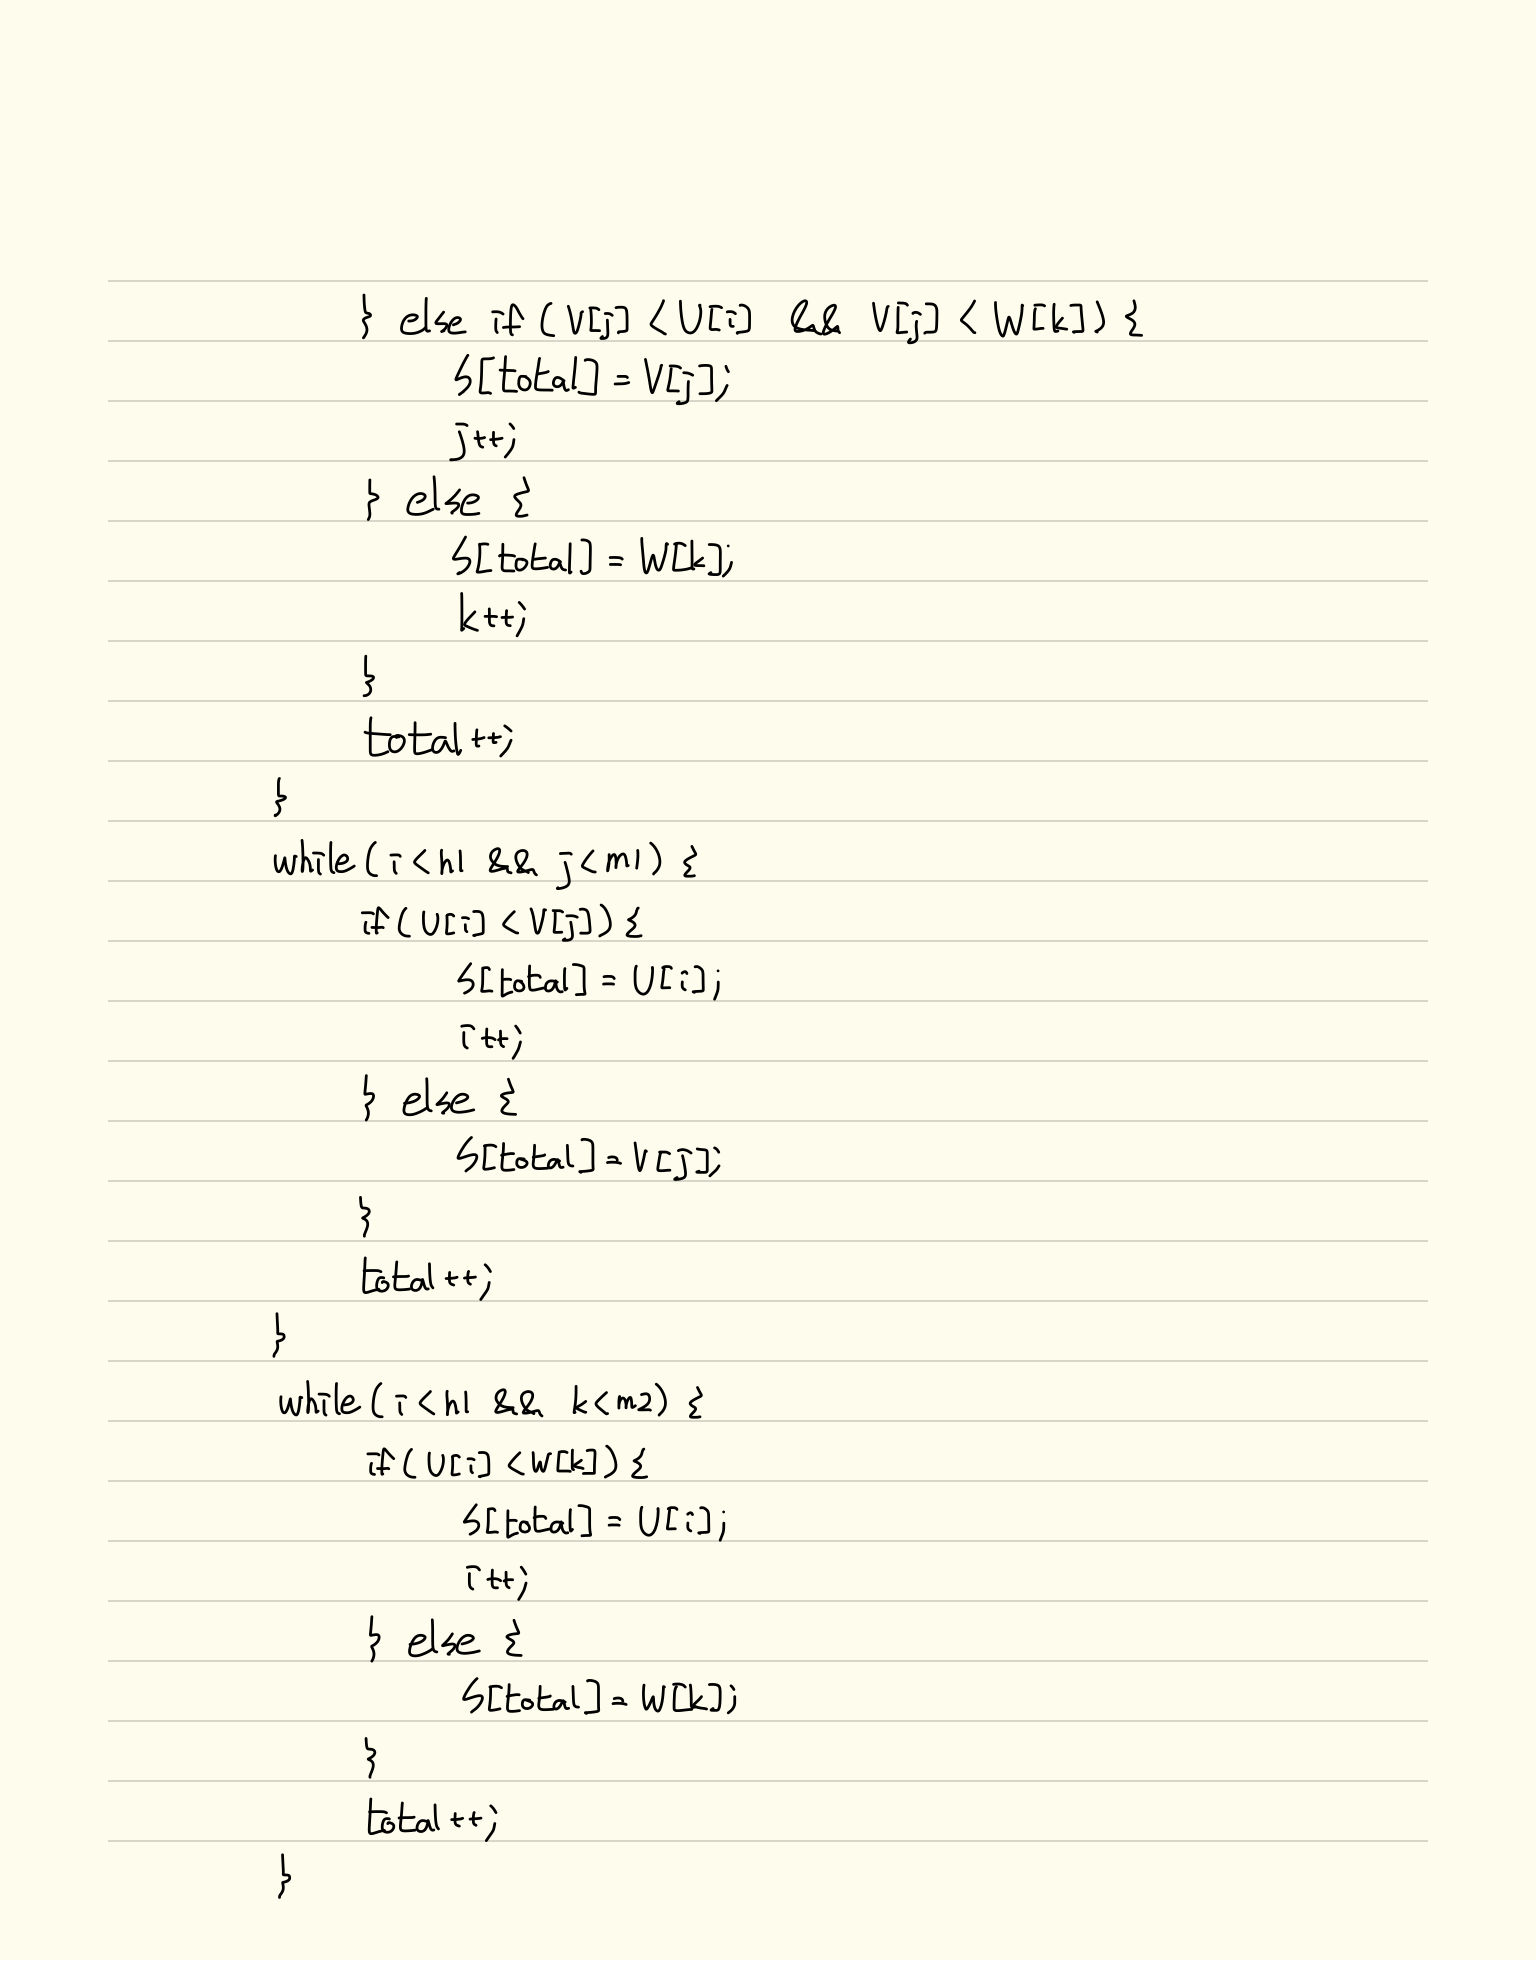 } else if (V[j] < U[i] && V[j] < W[k]) {
S[total] = V[j];
j++;
} else {
S[total] = W[k];
k++;
}
total++;
}
while (i < h1 && j < m1) {
if (U[i] < V[j]) {
S[total] = U[i];
i++;
} else {
S[total] = V[j];
}
total++;
}
while (i < h1 && k < m2) {
if (U[i] < W[k]) {
S[total] = U[i];
i++;
} else {
S[total] = W[k];
}
total++;
}